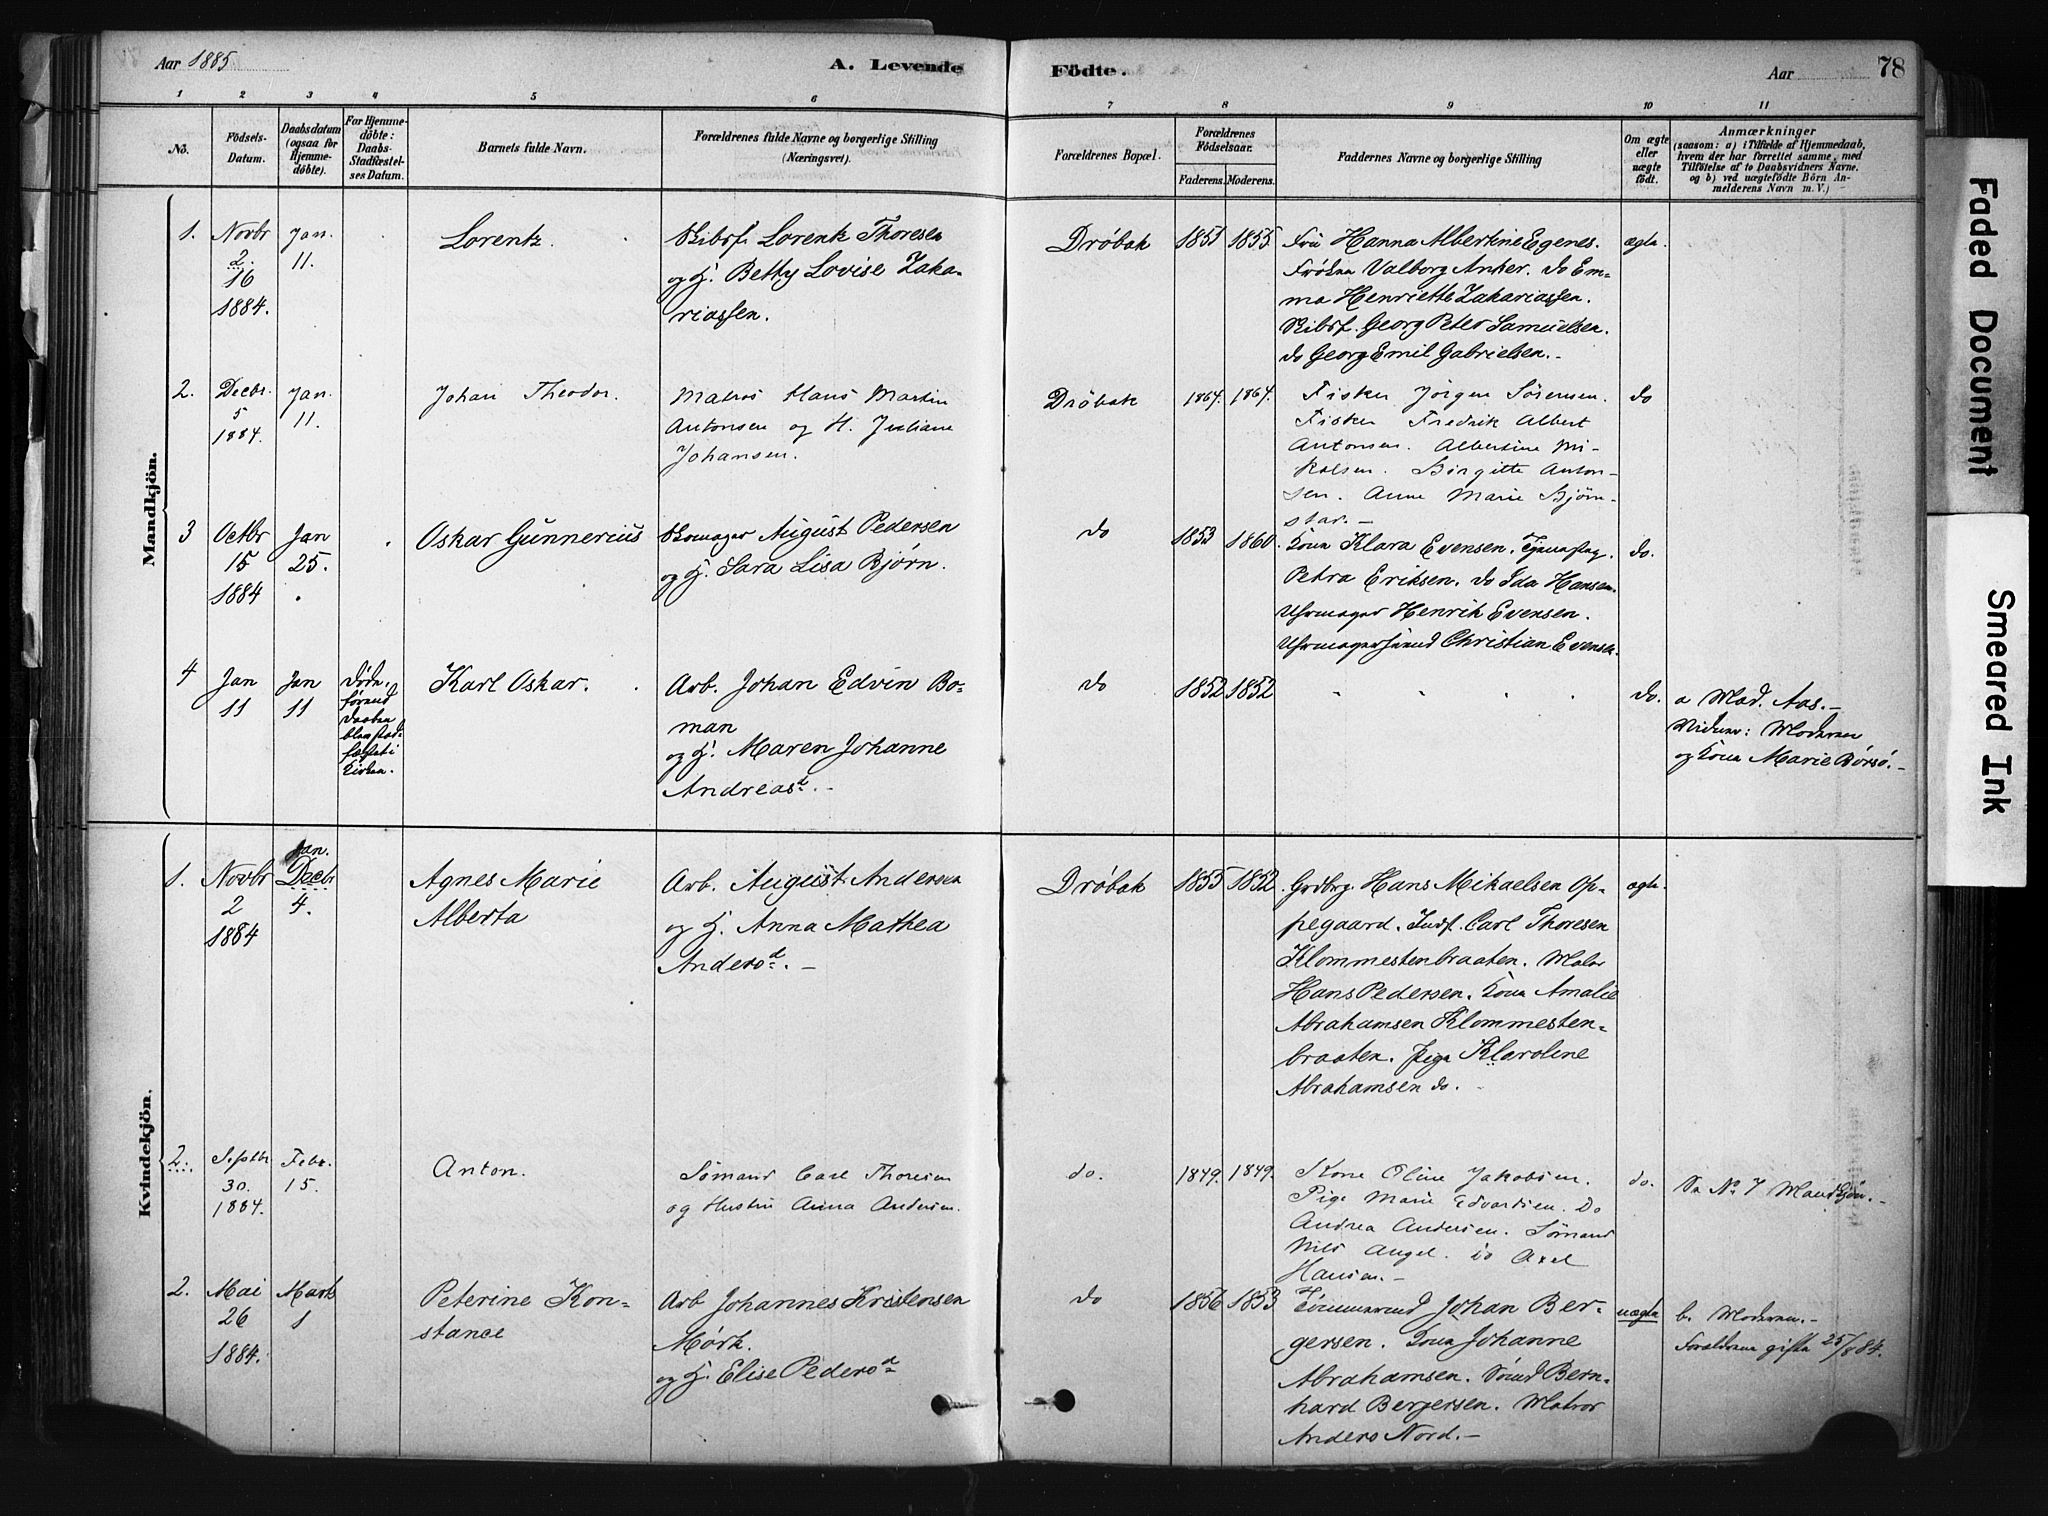 Aar 1885
A. Levende Födte.
Aar
78
1 2 3 4 5 6 7 8 9 10 11
No.
Födsels-
Datum.
Daabsdatum
(ogsaa for
Hjemme-
döbte).
For Hjemme-
döbte:
Daabs-
Stadfæstel-
ses Datum.
Barnets fulde Navn.
Forældrenes fulde Navne og borgerlige Stilling
(Næringsvei).
Forældrenes Bopæl.
Forældrenes
Födselsaar.
Faderens. Moderens.
Faddernes Navne og borgerlige Stilling
Om ægte
eller
uægte
födt.
Anmærkninger
(saasom: a) i Tilfælde af Hjemmedaab,
hvem der har forrettet samme, med
Tilföielse af to Daabsvidners Navne.
og b) ved uægtefödte Börn An-
melderens Navn m. V.)
Mandkjön.
1.
Novbr
2
16
1884.
Jan.
11.
Lorentz.
Skibsf. Lorentz Thoresen
og H. Betty Lovise Zaka-
riassen.
Drøbak
1851
1855
Fru Hanna Albertine Egenes.
Frøken Valborg Anker. do Em-
ma Henriette Zakariassen.
Skibsf. Georg Peter Samuelsen.
do Georg Emil Gabrielsen.-
ægte.
2.
Decbr.
5
1884.
Jan.
11.
Johan Theodor.
Matros Hans Martin
Antonsen og H. Juliane
Johansen.
Drøbak
1864.
1864.
Fisker Jørgen Sørensen.
Fisker Fredrik Albert
Antonsen. Albertine Mi-
kalsen. Birgitte Anton-
sen. Anne Marie Bjørn-
star.-
do
3
Octbr
15
1884
Jan
25.
Oskar Gunnerius
Skomager August Pedersen
og H. Sara Lisa Bjørn.
do
1853
1860
Kone Klara Evensen. Tjenestepg.
Petra Eriksen. do Ida Hansen
Uhrmager Henrik Evensen.
Uhrmagersvend Christian Evensen.
do.
4
Jan
11
Jan
11
Døde,
førend
daaben
blev stad-
fæstet i
Kirken.
Karl Oskar.
Arb. Johan Edvin Bo-
man
og H. Maren Johanne
Andreasd.-
do
1852
1852
do.
a Mad. Aas.-
Vidner: Moderen
og Kone Marie Børsø.-
Kvindekjön.
1.
Novbr
2
1884
Jan.
Decbr
4.
Agnes Marie
Alberta
Arb. August Andersen
og H. Anna Mathea
Andersd.-
Drøbak
1855
1852
Grdbrg. Hans Mikaelsen Op-
pegaard. Indf. Carl Thoresen
Klommestenbraaten. Maler
Hans Pedersen. Kone Amalie
Abrahamsen Klommesten-
braaten. Pige Klaroline
Abrahamsen do.-
ægte.
2.
Septbr
30.
1884.
Febr.
15.
Anton.
Sømand Carl Thoresen
og Hustru Anna Andersen.
do.
1849.
1849.
Kone Oline Jakobsen.
Pige Marie Edvardsen. Do
Andrea Andersen. Sømand
Nils Angel. do Axel
Hansen.-
do.
Se No 7 Mandkjøn.-
2.
Mai
26
1884.
Marts
1
Peterine Kon-
stance
Arb Johannes Kristensen
Mørk.
og H. Elise Pedersd
do
1856
1853
Tømmermd Johan Ber-
gersen. Kone Johanne
Abrahamsen. Sømd Bern-
hard Bergersen. Matros
Anders Nord.-
uægte
b. Moderen.-
Forældrene gifte 25/8 84.
Faded Document
Smeared Ink